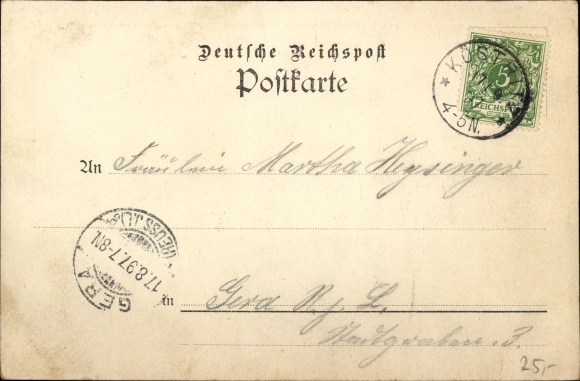 Deutsche Reichspost
Postkarte
KÖSTRITZ
17/8
4-5N.
5
REICHSPOST
An Fräulein Martha Heysinger
GERA
(REUSS J.L.)
17.8.97.7-8N.
in Gera R. j. L.
Stadtgraben 3.
25,-